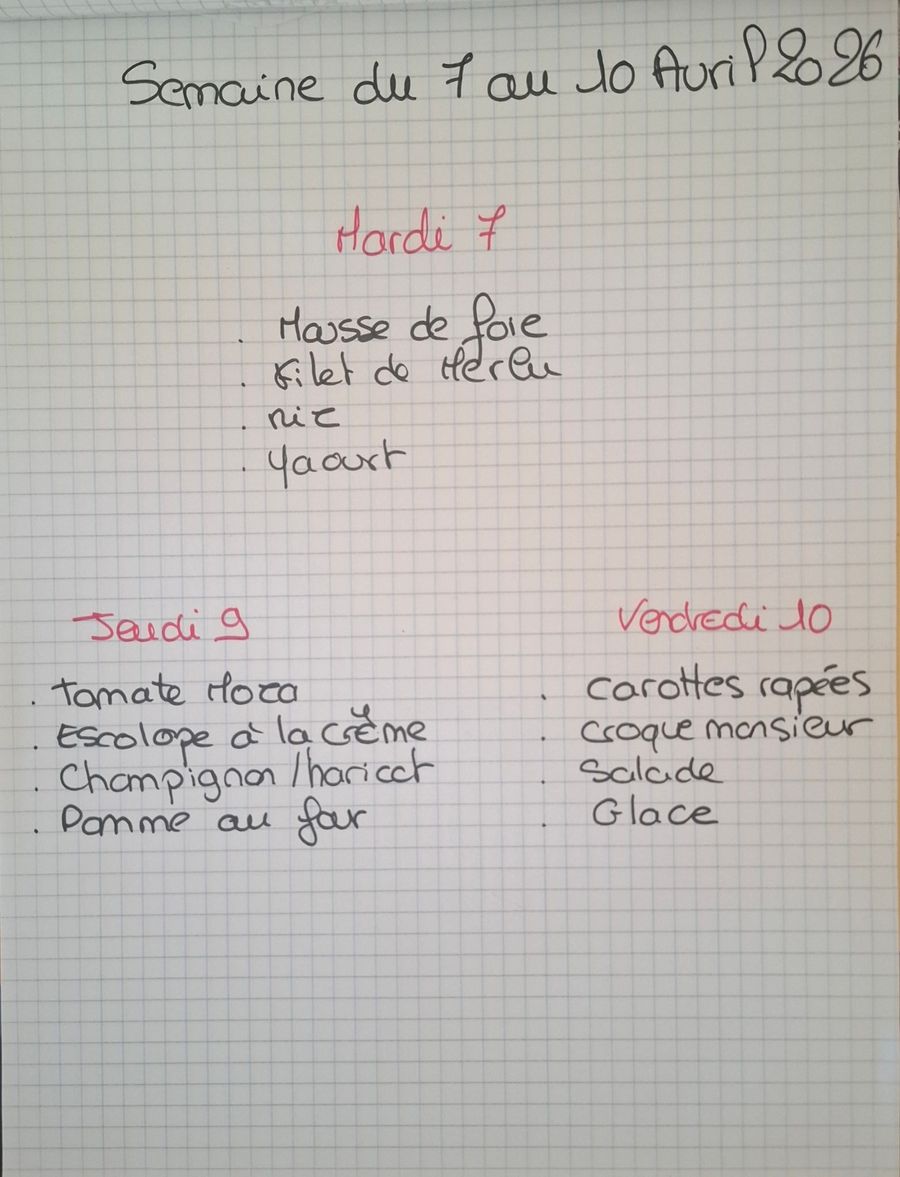 Semaine du 7 au 10 Avril 2026
Mardi 7
. Mousse de foie
. Filet de Merlu
. riz
. Yaourt
Jeudi 9
. Tomate Moza
. Escolope à la Crème
. Champignon / haricot
. Pomme au four
Vendredi 10
. Carottes rapées
. Croque monsieur
. Salade
. Glace